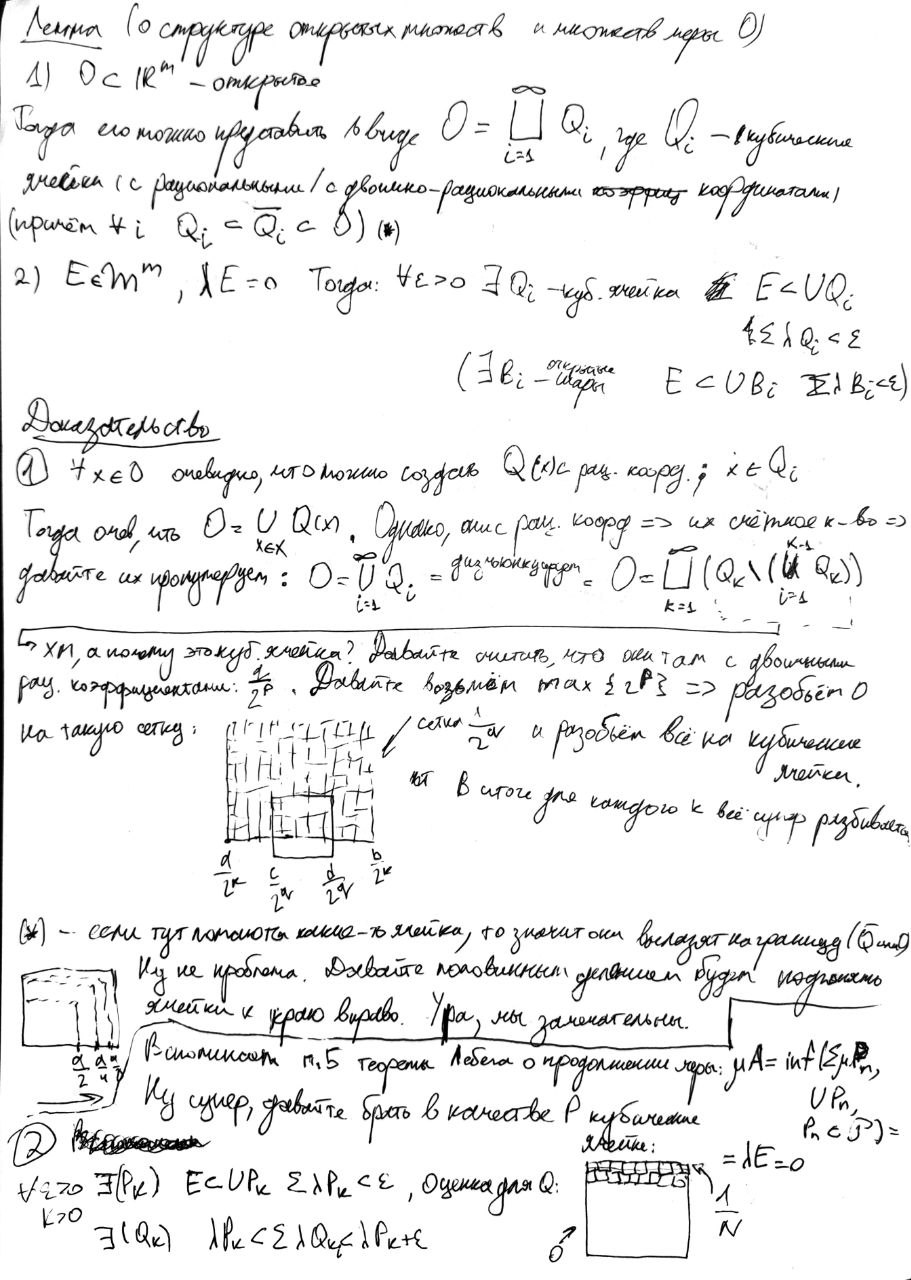 Лемма (о структуре открытых множеств и множеств меры 0)
1) O ⊂ ℝ^m – открытое
Тогда его можно представить в виде O = ⨆_{i=1}^{∞} Q_i, где Q_i – кубические
ячейки (с рациональными / с двоично-рациональными координатами)
(причём ∀ i Q_i ⊂ Q̄_i ⊂ O) (*)
2) E ∈ 𝔐^m, λE = 0 Тогда: ∀ε>0 ∃ Q_i – куб. ячейка E ⊂ ∪Q_i
Σ λQ_i < ε
(∃ B_i – открытые шары E ⊂ ∪B_i Σ λB_i < ε)
Доказательство
① ∀ x ∈ O очевидно, что можно создать Q(x) с рац. коорд.; x ∈ Q_i
Тогда очев, что O = ∪_{x∈X} Q(x). Однако, они с рац. коорд => их счётное к-во =>
давайте их пронумеруем: O = ∪_{i=1}^{∞} Q_i = дизъюнкцируем = O = ⨆_{k=1}^{∞} (Q_k \ (∪_{i=1}^{k-1} Q_k))
↳ хм, а почему это куб. ячейка? Давайте считать, что они там с двоичными
рац. коэффициентами: q/2^p. Давайте возьмём max {2^p} => разобьём O
на такую сетку: сетка 1/2^q и разобьём всё на кубические
ячейки.
В итоге для каждого k всё супер разбивается
a/2^k c/2^q d/2^q b/2^k
(*) – если тут ломаются какие-то ячейка, то значит они вылазят на границу
Ну не проблема. Давайте половинным делением будем подгонять
ячейки к краю вправо. Ура, мы замечательны.
a/2 a/4
Вспоминаем п.5 теоремы Лебега о продолжении меры: μA = inf (Σ μP_n,
∪P_n,
P_n ⊂ 𝒫) =
Ну супер, давайте брать в качестве P кубические
ячейки:
= λE = 0
②
∀ε>0 ∃(P_k) E ⊂ ∪P_k Σ λP_k < ε, Оценка для Q:
k>0
1/N
∃(Q_k) λP_k < Σ λQ_k < λP_k + ε
O